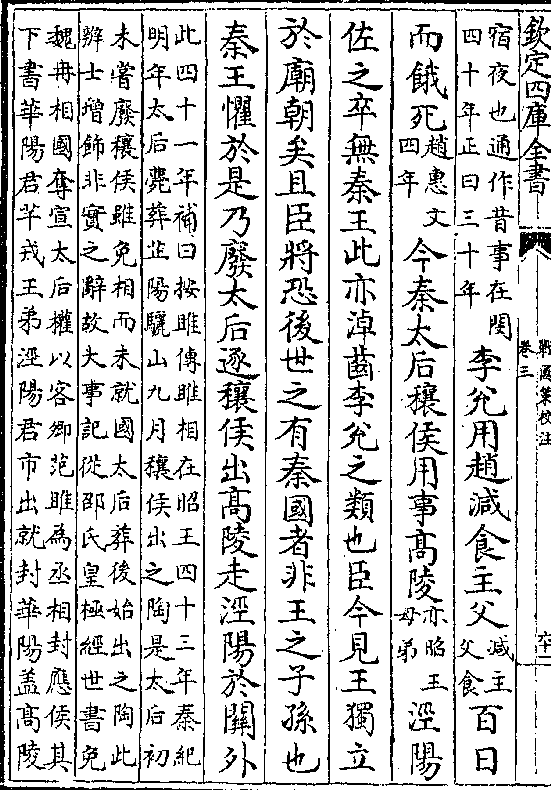 欽定四庫全書
戰國策校注
卷三
宿夜也通作昔事在閔
四十年正曰三十年
李兊用趙減食主父
減主
父食
百日
而餓死
趙惠文
四年
今秦太后穰侯用事髙陵
亦昭王
母弟
涇陽
佐之卒無秦王此亦淖齒李兊之類也臣今見王獨立
於廟朝矣且臣將恐後世之有秦國者非王之子孫也
秦王懼於是乃廢太后逐穰侯出髙陵走涇陽於關外
此四十一年補曰按雎傳雎相在昭王四十三年秦紀
明年太后薨葬芷陽驪山九月穰侯出之陶是太后初
未嘗廢穰侯雖免相而未就國太后葬後始出之陶此
辨士增飾非實之辭故大事記從邵氏皇極經世書免
魏冉相國奪宣太后權以客卿范雎為丞相封應侯其
下書華陽君芊戎王弟涇陽君市出就封華陽蓋髙陵